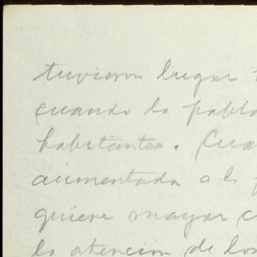 tuvieron lugar
cuando la pobla
habitantes. Cua
aumentada a la
quiere mayor c
la atencion de los